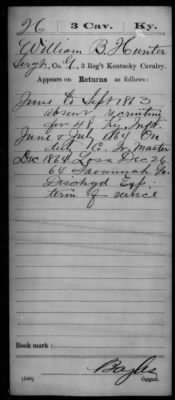 26 3 Cav. Ky.
William B. Hunter
Sergt, Co. , 3 Reg't Kentucky Cavalry.
Appears on
Returns as follows:
June to Sept 1863
absent recruiting
for 48 Ky. Inft.
June & July 1864 On
duty . Master
Dec 1864 Loss Dec 26
64 Savannah Ga.
Dischgd Exp:
term of service
Book mark:
Bayles
(546) Copyist.